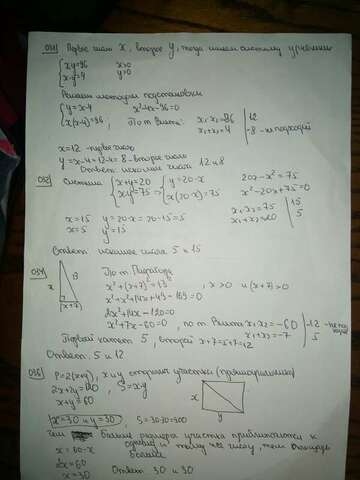 031) Первое число x, второе y, тогда имеем систему уравнений
{ xy=96 x>0
x-y=4 y>0
Решаем методом подстановки
{ y=x-4 x²-4x-96=0
x(x-4)=96, По т. Виета: x₁x₂=-96 | 12
x₁+x₂=4 | -8 - не подходит
x=12 - первое число
y=x-4=12-4=8 - второе число
Ответ: искомые числа 12 и 8
032 Система { x+y=20 { y=20-x 20x-x²=75
xy=75 => x(20-x)=75 x²-20x+75=0
x=15 y=20-x=20-15=5 x₁x₂=75 | 15
x=5 y=15 x₁+x₂=20 | 5
Ответ искомые числа 5 и 15
034) По т. Пифагора
x 13 x²+(x+7)²=13², x>0 и (x+7)>0
(x+7) x²+x²+14x+49-169=0
2x²+14x-120=0
x²+7x-60=0, по т. Виета x₁x₂=-60 | -12 - не подх
x₁+x₂=-7 | 5
Первый катет 5, второй x+7=5+7=12
Ответ: 5 и 12
036) P=2(x+y), x и y стороны участка (прямоугольника)
2x+2y=120, S=xy x
x+y=60 y
x=30 и y=30, S=30·30=900
Чем больше размеры участка приближаются к
одному и тому же числу, тем площадь
больше
x=60-x
2x=60
x=30 Ответ 30 и 30